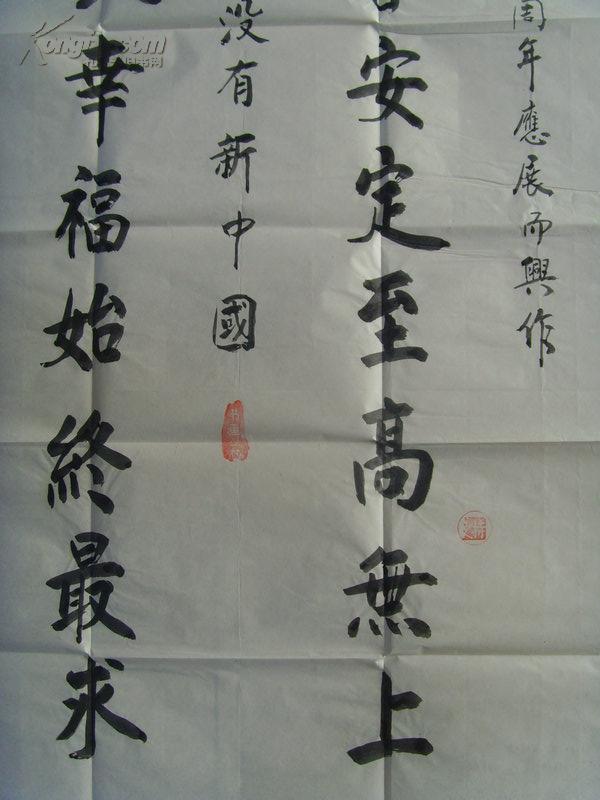 周年應展而興作
安定至高無上
没有新中國
幸福始終最求